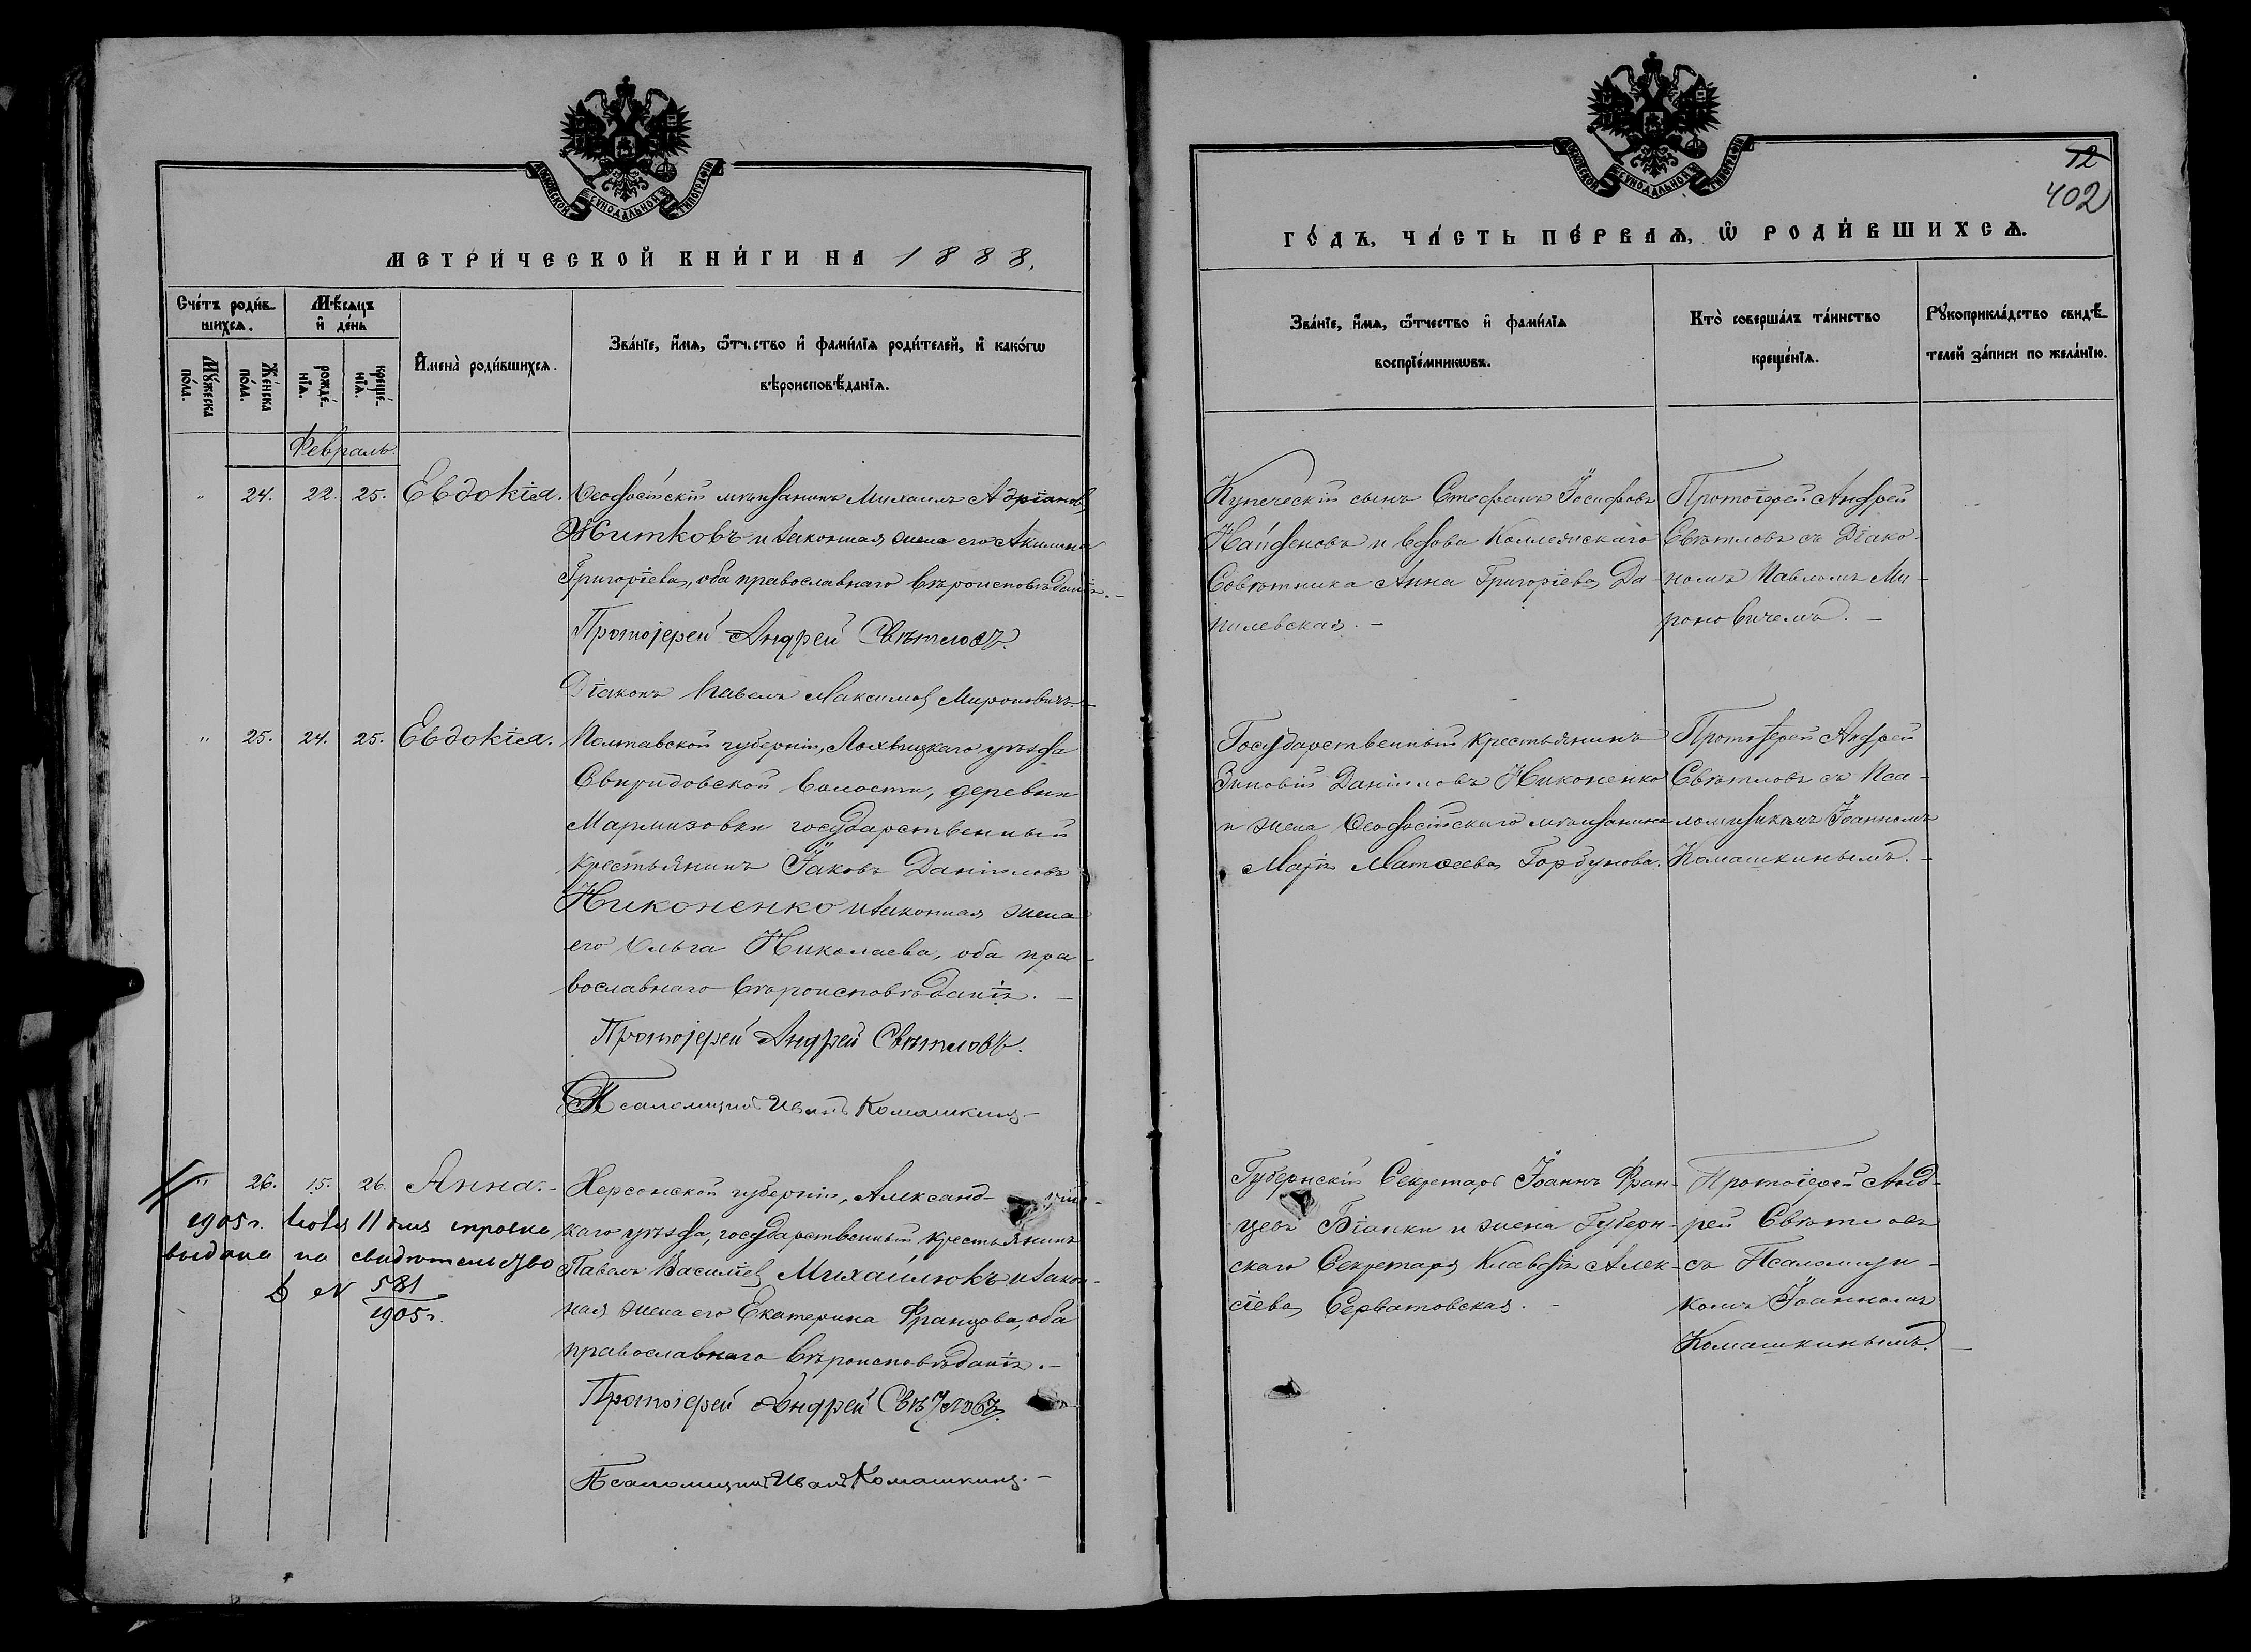 МОСКОВСКОЙ СѴНОДАЛЬНОЙ ТИПОГРАФІИ
МЕТРИ́ЧЕСКОЙ КНИ́ГИ НА 1888.
Сче́тъ роди́в-
шихсѧ.
Мѣ́сѧцъ
и҆ де́нь
И҆мена̀ роди́вшихсѧ.
Зва́нїе, и҆́мѧ, ѿтч.ство и҆ фами́лїѧ роди́телей, и҆ како́гѡ
вѣроисповѣ́данїѧ.
Мꙋ́жеска
по́ла.
Же́нска
по́ла.
рожде́-
нїѧ.
креще́-
нїѧ.
Февраль.
" 24. 22. 25. Евдокія. Ѳеодосійскій мѣщанинъ Михаилъ Адріановъ
Житковъ и законная жена его Акилина
Григоріева, оба православнаго вѣроисповѣданія. –
Протоіерей Андрей Свѣтловъ.
Діаконъ Павелъ Максимовъ Мироновичъ –
" 25. 24. 25. Евдокія. Полтавской губерніи, Лохвицкаго уѣзда
Свиридовской волости, деревни
Мармизовки государственный
крестьянинъ Іаковъ Даніиловъ
Никоненко и законная жена
его Ольга Николаева, оба пра-
вославнаго вѣроисповѣданія. –
Протоіерей Андрей Свѣтловъ.
Псаломщикъ Иванъ Комашкинъ –
" 26. 15. 26. Анна. – Херсонской губерніи, Александ-
каго уѣзда, государственный крестьянинъ
Павелъ Василіевъ Михайлюкъ и закон-
ная жена его Екатерина Францова, оба
православнаго вѣроисповѣданія. –
Протоіерей Андрей Свѣтловъ.
Псаломщикъ Иванъ Комашкинъ. –
1905 г. 11 дня
выдана на свидѣтельство
№ 581
1905 г.
МОСКОВСКОЙ СѴНОДАЛЬНОЙ ТИПОГРАФІИ
12
402
ГО́ДЪ, ЧА́СТЬ ПЕ́РВАѦ, Ѡ҆ РОДИ́ВШИХСѦ.
Зва́нїе, и҆́мѧ, ѿтчество и҆ фами́лїѧ
воспрїе́мникѡвъ.
Кто̀ соверша́лъ та́инство
креще́нїѧ.
Рꙋкоприкла́дство свидѣ́-
телей за́писи по жела́нїю.
Купеческій сынъ Стефанъ Іосифовъ
Найденовъ и вдова Коллежскаго
Совѣтника Анна Григоріева Да-
нилевская. –
Протоіерей Андрей
Свѣтловъ съ Діако-
номъ Павломъ Ми-
роновичемъ. –
Государственный крестьянинъ
Зиновій Даніиловъ Никоненко
и жена Ѳеодосійскаго мѣщанина
Марія Матѳеева Горбунова.
Протоіерей Андрей
Свѣтловъ съ Пса-
ломщикомъ Іоанномъ
Комашкинымъ. –
Губернскій Секретарь Іоаннъ Фран-
цевъ Біанки и жена Губерн-
скаго Секретаря Клавдія Алек-
сіева Серватовская. –
Протоіерей Анд-
рей Свѣтловъ
съ Псаломщи-
комъ Іоанномъ
Комашкинымъ. –